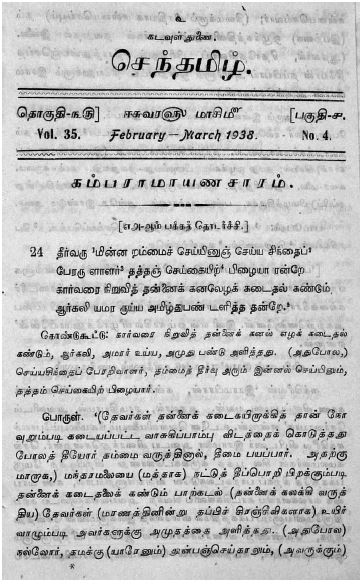 உ
கடவுள் துணை.
செந்தமிழ்.
தொகுதி-௩௫] ஈசுவரளு மாசிமீ [பகுதி-௪.
Vol. 35. February—March 1938. No. 4.
கம்பராமாயணசாரம்.
[எஅ-ஆம் பக்கத் தொடர்ச்சி.]
24 தீர்வரு மின்ன றம்மைச் செய்யினுஞ் செய்ய சிந்தைப்
பேரரு ளாளர் தத்தஞ் செய்கையிற் பிழையா ரன்றே
கார்வரை நிறுவித் தன்னைக் கனலெழக் கடைதல் கண்டும்
ஆர்கலி யமர ருய்ய அமிழ்துபண் டளித்த தன்றே.
கொண்டுகூட்டு: கார்வரை நிறுவித் தன்னைக் கனல் எழக் கடைதல்
கண்டும், ஆர்கலி, அமரர் உய்ய, அமுது பண்டு அளித்தது. (அதுபோல,)
செய்யசிந்தைப் பேரருளாளர், தம்மைத் தீர்வு அரும் இன்னல் செய்யினும்,
தத்தம் செய்கையிற் பிழையார்.
பொருள். '(தேவர்கள் தன்னைக் கடைகயிறாக்கித் தான் நோ
வுறும்படி கடையப்பட்ட வாசுகிப்பாம்பு விடத்தைக் கொடுத்தது
போலத் தீயோர் தம்மை வருத்தினால், தீமை பயப்பார். அதற்கு
மாறாக,) மந்தரமலையை (மத்தாக) நட்டுத் தீப்பொறி பிறக்கும்படி
தன்னைக் கடைதலைக் கண்டும் பாற்கடல் (தன்னைக் கலக்கி வருத்
திய) தேவர்கள் (மரணத்தினின்று தப்பிச் சிரஞ்சீவிகளாக) உயிர்
வாழும்படி அவர்களுக்கு அமுதத்தை அளித்தது. (அதுபோல)
நல்லோர், தமக்கு (யாரேனும்) துன்பஞ்செய்தாலும், (அவருக்கும்)
*